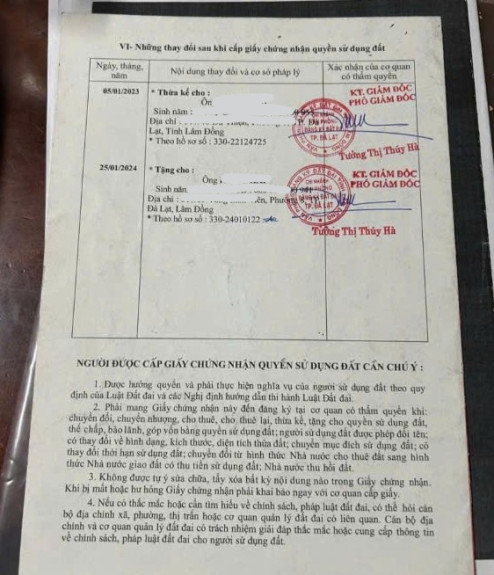 VI- Những thay đổi sau khi cấp giấy chứng nhận quyền sử dụng đất
Ngày, tháng, năm
Nội dung thay đổi và cơ sở pháp lý
Xác nhận của cơ quan có thẩm quyền
05/01/2023
* Thừa kế cho :
Ôn
Sinh năm :
Địa chỉ :
Lạt, Tỉnh Lâm Đồng
* Theo hồ sơ số : 330-22124725
KT. GIÁM ĐỐC
PHÓ GIÁM ĐỐC
CHI NHÁNH
VĂN PHÒNG
ĐĂNG KÝ ĐẤT ĐAI
TP. ĐÀ LẠT
Tưởng Thị Thúy Hà
25/01/2024
* Tặng cho :
Ông
Sinh năm
Địa chỉ : Phường
Đà Lạt, Lâm Đồng
* Theo hồ sơ số : 330-24010122
KT. GIÁM ĐỐC
PHÓ GIÁM ĐỐC
CHI NHÁNH
TP. ĐÀ LẠT
Tưởng Thị Thúy Hà
NGƯỜI ĐƯỢC CẤP GIẤY CHỨNG NHẬN QUYỀN SỬ DỤNG ĐẤT CẦN CHÚ Ý :
1. Được hưởng quyền và phải thực hiện nghĩa vụ của người sử dụng đất theo quy
định của Luật Đất đai và các Nghị định hướng dẫn thi hành Luật Đất đai.
2. Phải mang Giấy chứng nhận này đến đăng ký tại cơ quan có thẩm quyền khi:
chuyển đổi, chuyển nhượng, cho thuê, cho thuê lại, thừa kế, tặng cho quyền sử dụng đất,
thế chấp, bảo lãnh, góp vốn bằng quyền sử dụng đất; người sử dụng đất được phép đổi tên;
có thay đổi về hình dạng, kích thước, diện tích thửa đất; chuyển mục đích sử dụng đất; có
thay đổi thời hạn sử dụng đất; chuyển đổi từ hình thức Nhà nước cho thuê đất sang hình
thức Nhà nước giao đất có thu tiền sử dụng đất; Nhà nước thu hồi đất.
3. Không được tự ý sửa chữa, tẩy xóa bất kỳ nội dung nào trong Giấy chứng nhận.
Khi bị mất hoặc hư hỏng Giấy chứng nhận phải khai báo ngay với cơ quan cấp giấy.
4. Nếu có thắc mắc hoặc cần tìm hiểu về chính sách, pháp luật đất đai, có thể hỏi cán
bộ địa chính xã, phường, thị trấn hoặc cơ quan quản lý đất đai có liên quan. Cán bộ địa
chính và cơ quan quản lý đất đai có trách nhiệm giải đáp thắc mắc hoặc cung cấp thông tin
về chính sách, pháp luật đất đai cho người sử dụng đất.